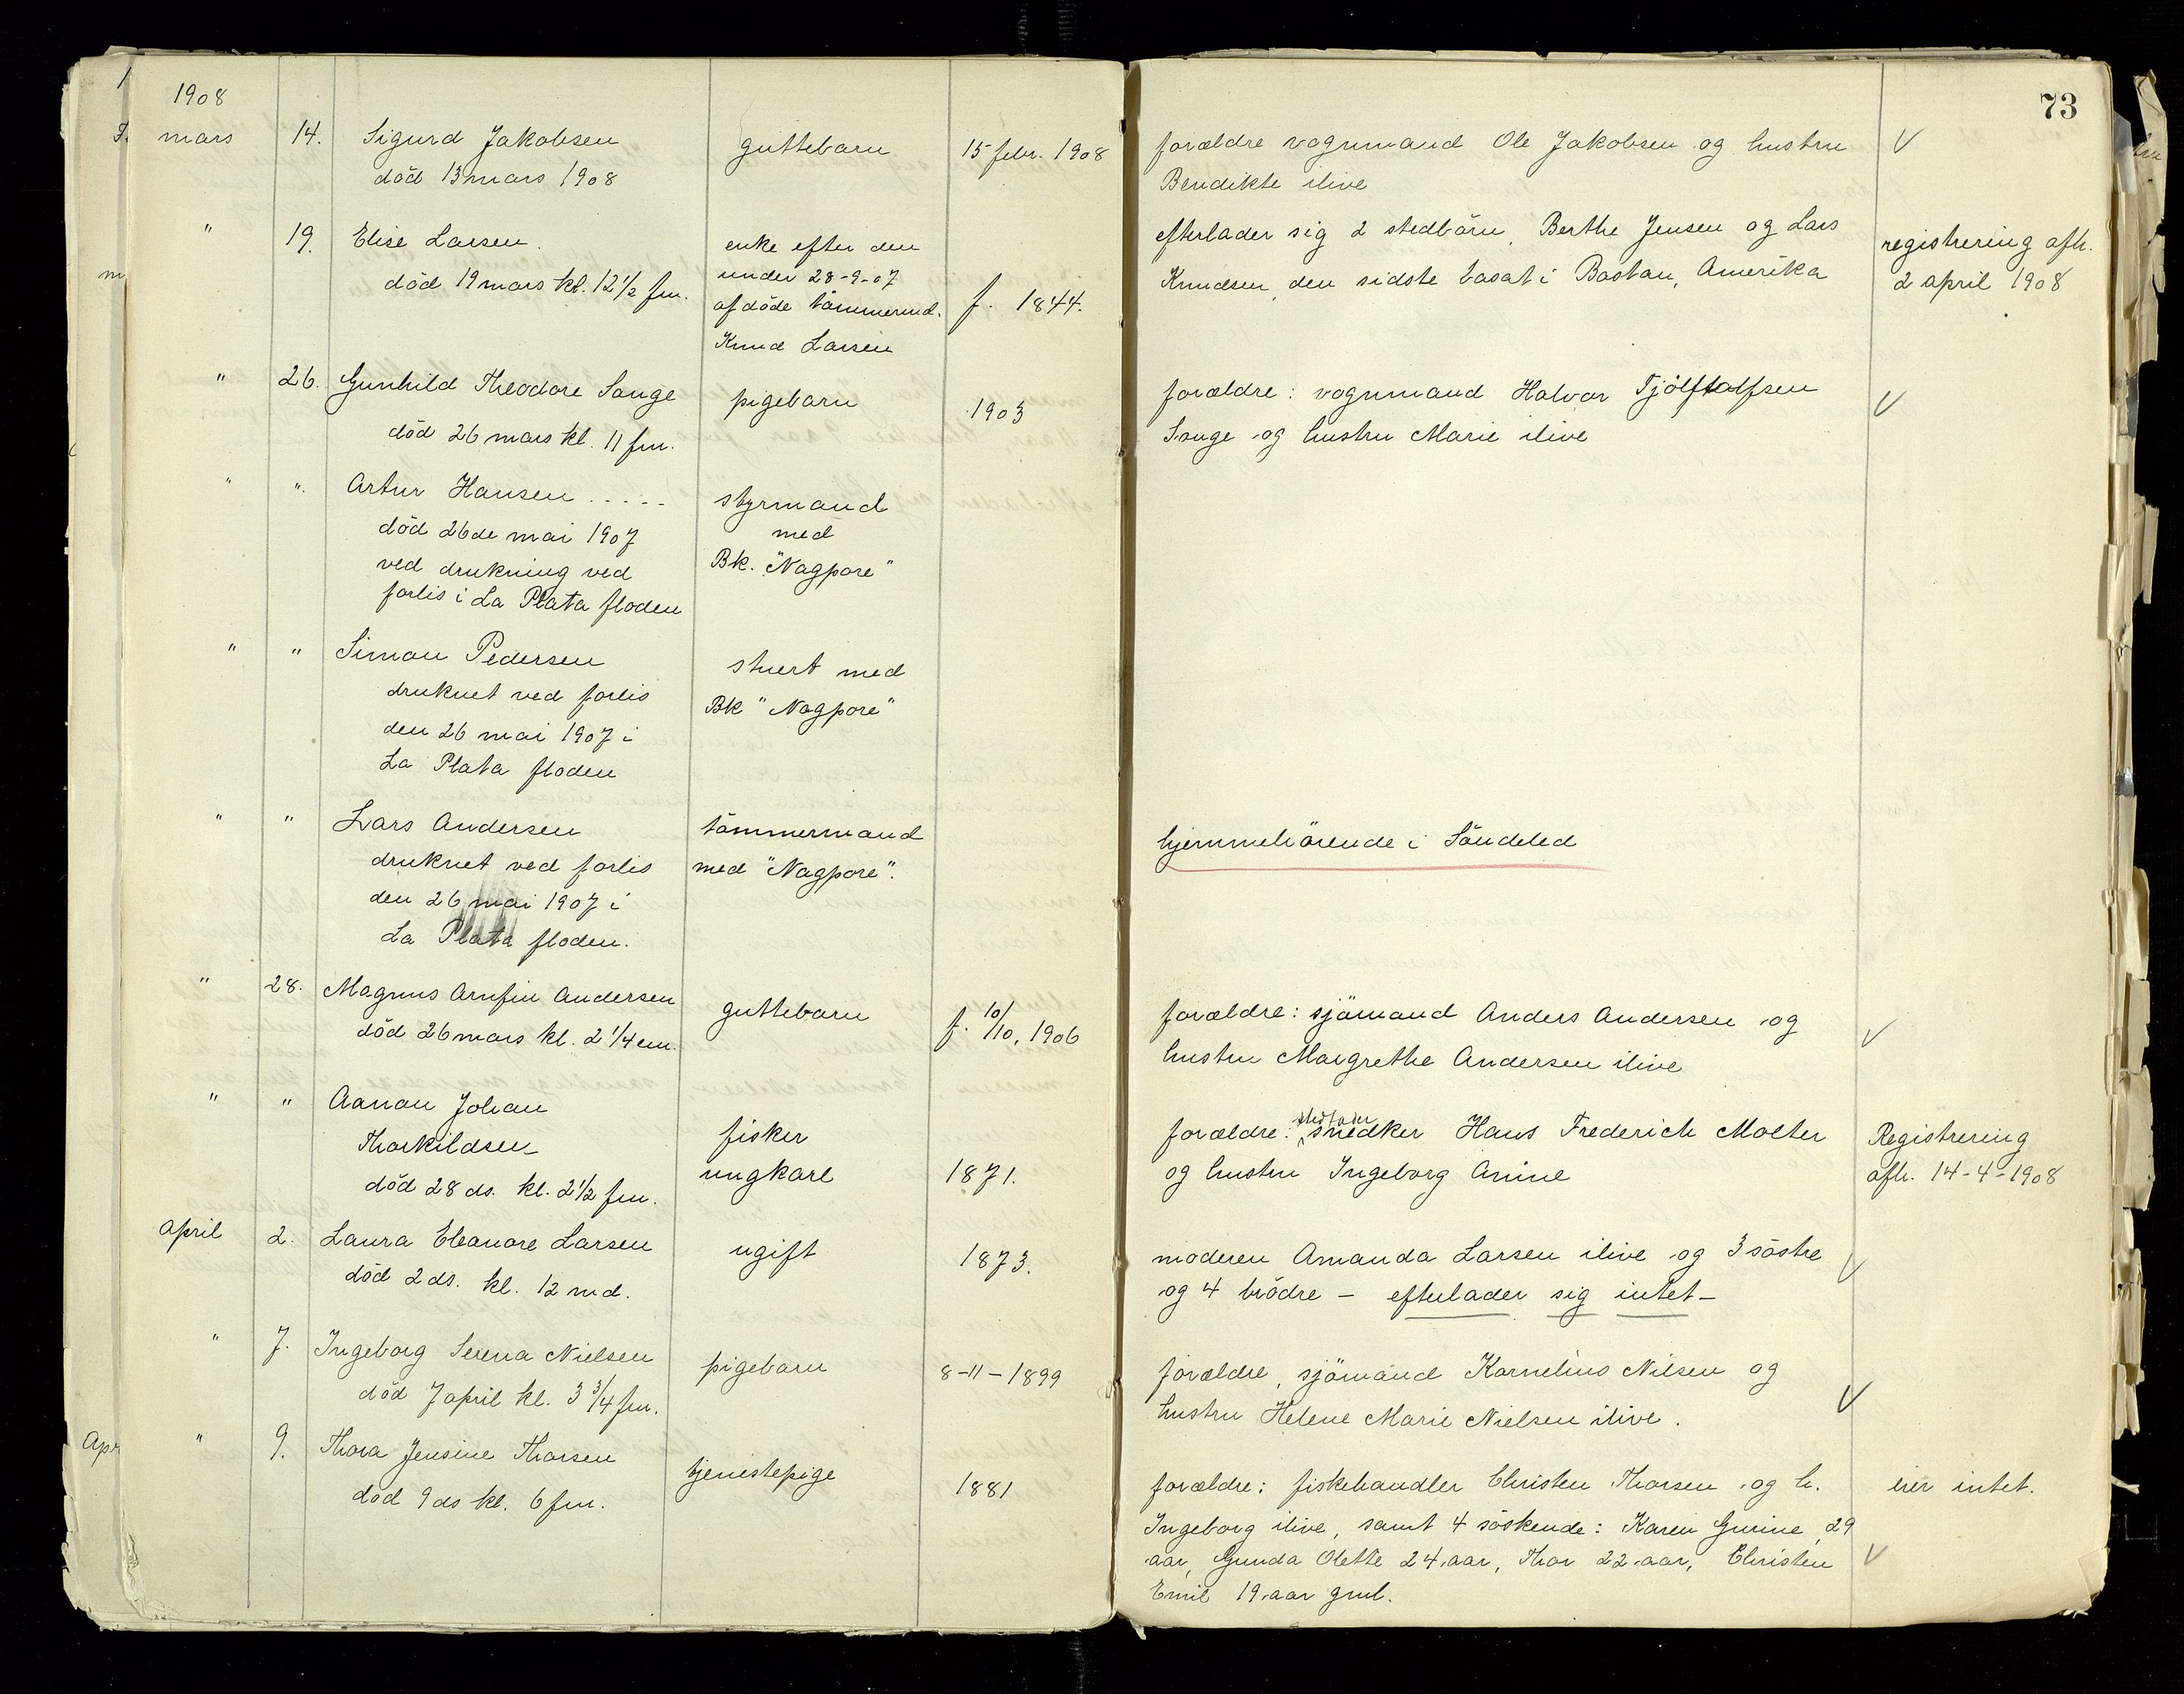 73
1908
mars 14. Sigurd Jakobsen guttebarn 15 febr. 1908 forældre vognmand Ole Jakobsen og hustru
död 13 mars 1908 Bendikte ilive
" 19. Elise Larsen. enke efter den efterlader sig 2 stedbörn, Berthe Jensen og Lars registrering afh.
död 19 mars kl. 12 1/2 fm. under 28-9-07 f. 1844. Knudsen, den sidste bosat i Bostan, Amerika 2 april 1908
afdöde tömmermd.
Knud Larsen
" 26. Gunhild Theodore Songe pigebarn 1903 forældre: vognmand Halvor Tjölftolfsen
död 26 mars kl. 11 fm. Songe og hustru Marie ilive
" ". Artur Hansen ..... styrmand
död 26de mai 1907 med
ved drukning ved Bk. "Nagpore"
forlis i La Plata floden
" " Simon Pedersen stuert med
druknet ved forlis Bk "Nagpore"
den 26 mai 1907 i
La Plata floden
" " Lars Andersen tömmermand hjemmehörende i Söndeled
druknet ved forlis med "Nagpore".
den 26 mai 1907 i
La Plata floden.
" 28. Magnus Arnfin Andersen guttebarn f. 10/10, 1906 forældre: sjömand Anders Andersen og
död 26 mars kl. 2 1/4 em. hustru Margrethe Andersen ilive
" " Aanon Johan fisker stedfader
Thorkildsen ungkarl 1871. forældre: snedker Hans Frederich Molter Registrering
död 28 ds. kl. 2 1/2 fm. og hustru Ingeborg Anine afh. 14-4-1908
april 2. Laura Eleanore Larsen ugift 1873. moderen Amanda Larsen ilive og 3 söstre
död 2 ds. kl. 12 md. og 4 brödre - efterlader sig intet -
" 7. Ingeborg Serena Nielsen pigebarn 8-11-1899 forældre, sjömand Kornelius Nilsen og
död 7 april kl. 3 3/4 fm. hustru Helene Marie Nielsen ilive.
" 9. Thora Jensine Thorsen tjenestepige 1881 forældre: fiskehandler Christen Thorsen og h. eier intet.
död 9 ds kl. 6 fm. Ingeborg ilive, samt 4 söskende: Karen Gurine, 29
aar, Gunda Olette 24 aar, Thor 22 aar, Christen
Emil 19 aar gml.